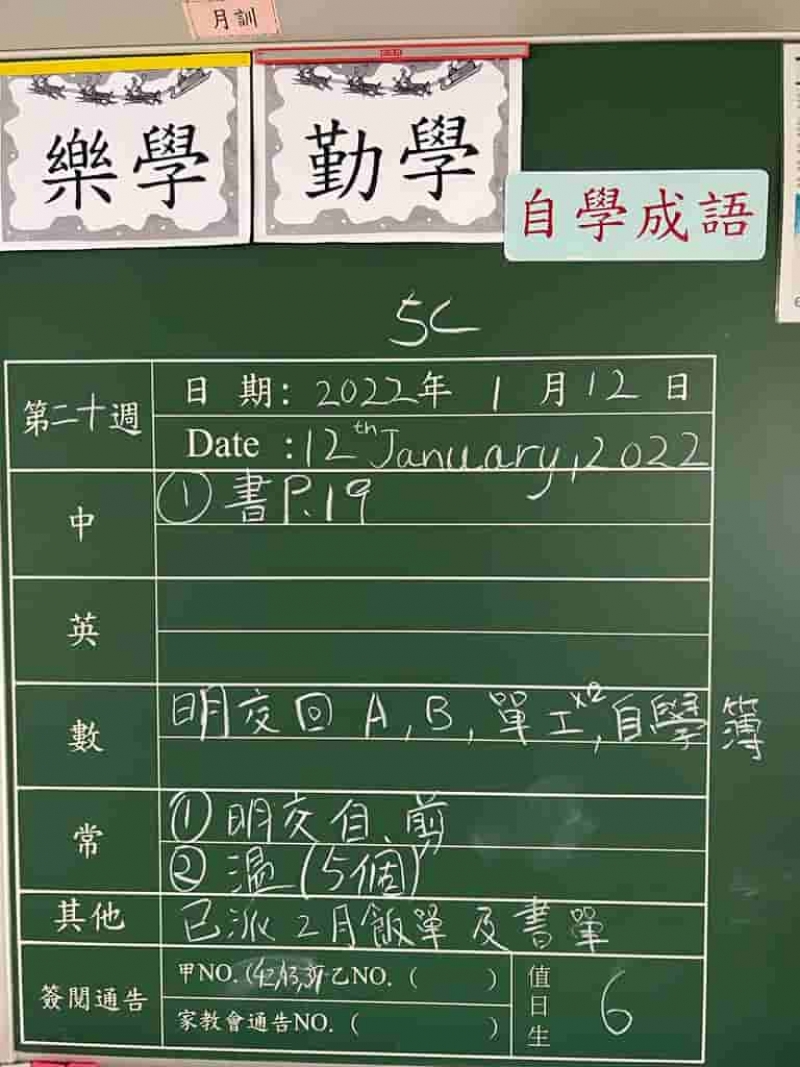 月訓
樂學 勤學
自學成語
5C
第二十週
日期：2022年 1月12日
Date : 12th January, 2022
中
① 書P.19
英
數
明交回 A, B, 單工x2, 自學簿
常
① 明交自、剪
② 溫(5個)
其他
已派2月飯單及書單
簽閱通告
甲NO. (42, 乙NO. ( )
家教會通告NO. ( )
值日生
6